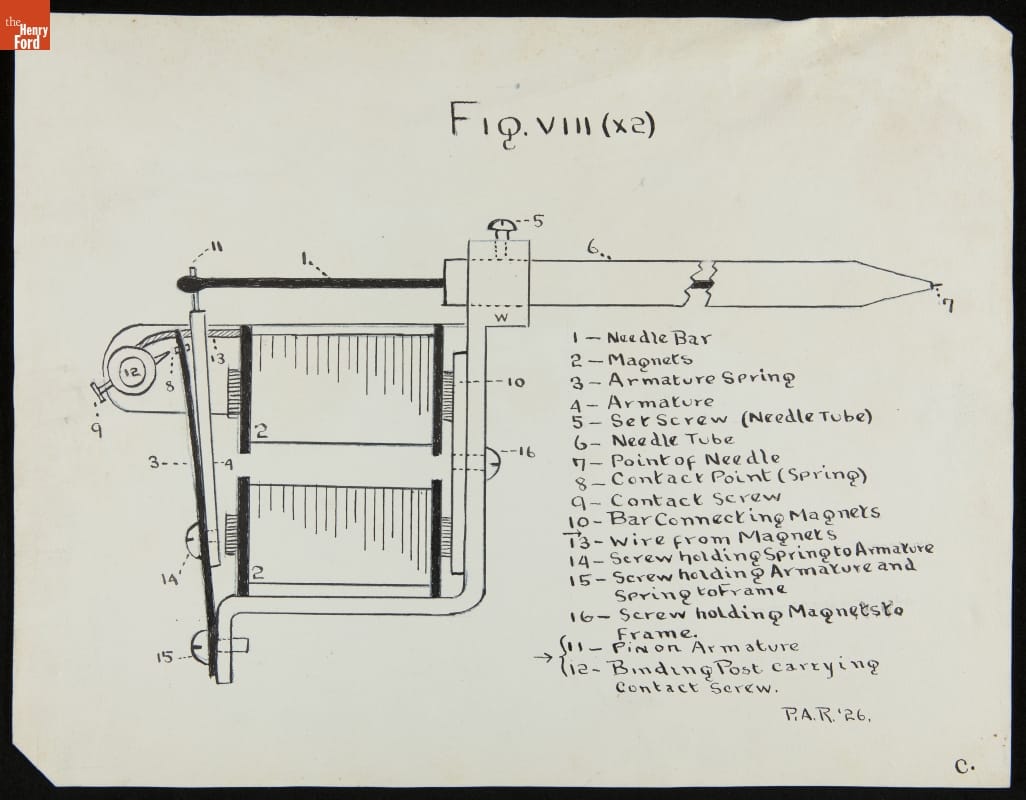 the
Henry
Ford
Fig. VIII (x2)
5
6
11
1
7
W
13
12
8
10
9
2
3
4
16
14
2
15
1 – Needle Bar
2 – Magnets
3 – Armature Spring
4 – Armature
5 – Set Screw (Needle Tube)
6 – Needle Tube
7 – Point of Needle
8 – Contact Point (Spring)
9 – Contact Screw
10 – Bar Connecting Magnets
→ 13 – Wire from Magnets
14 – Screw holding Spring to Armature
15 – Screw holding Armature and
Spring to Frame
16 – Screw holding Magnets to
Frame.
→ { 11 – Pin on Armature
12 – Binding Post carrying
Contact Screw.
P.A.R. '26.
C.